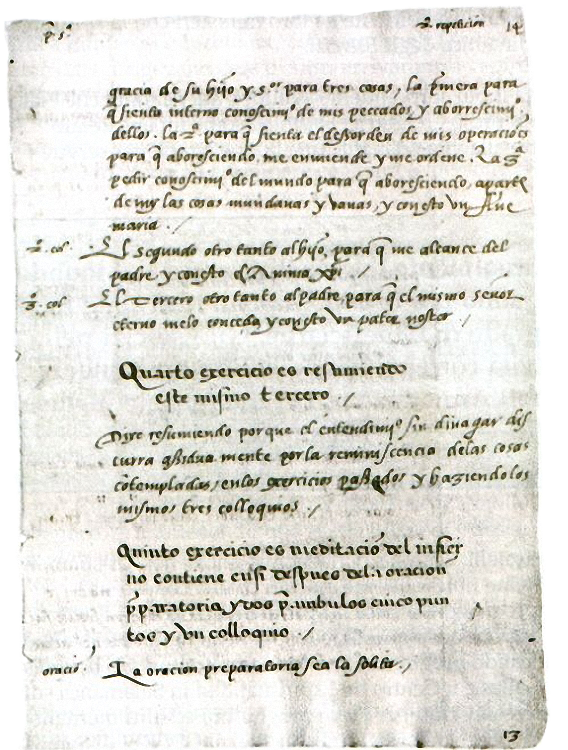 p.ª s.ª
2.ª repetición 14
gracia de su hijo y s.or para tres cosas, la p̃mera para
q̃ sienta interno conoscimi.º de mis peccados y aborrescimi.º
dellos. la 2.ª para q̃ sienta el desorden de mis operaciões
para q̃ aboresciendo, me enmiende y me ordene. La 3.ª
pedir conoscimi.º del mundo para q̃ aboresciendo, aparte
de my las cosas mundanas y vanas, y con esto vn Aue
maria.
2.º col. El segundo otro tanto al hijo, para q̃ me alcance del
padre y con esto el Anima Xpi ./
3.º col. El Tercero otro tanto al padre, para q̃ el mismo señor
eterno me lo conceda y con esto vn pater noster ./
Quarto exercicio es resumiendo
este mismo tercero ./
Dixe resumiendo porque el entendimi.º sin diuagar dis
curra assidua mente por la reminiscencia delas cosas
cõtempladas, enlos exercicios passados y haziendo los
mismos tres colloquios ./
Quinto exercicio es meditació del infier
no contiene en si despues dela oracion
p̃paratoria, y dos p̃ambulos cinco pun
tos y vn colloquio ./
oració. La oracion preparatoria sea la solita ./
13